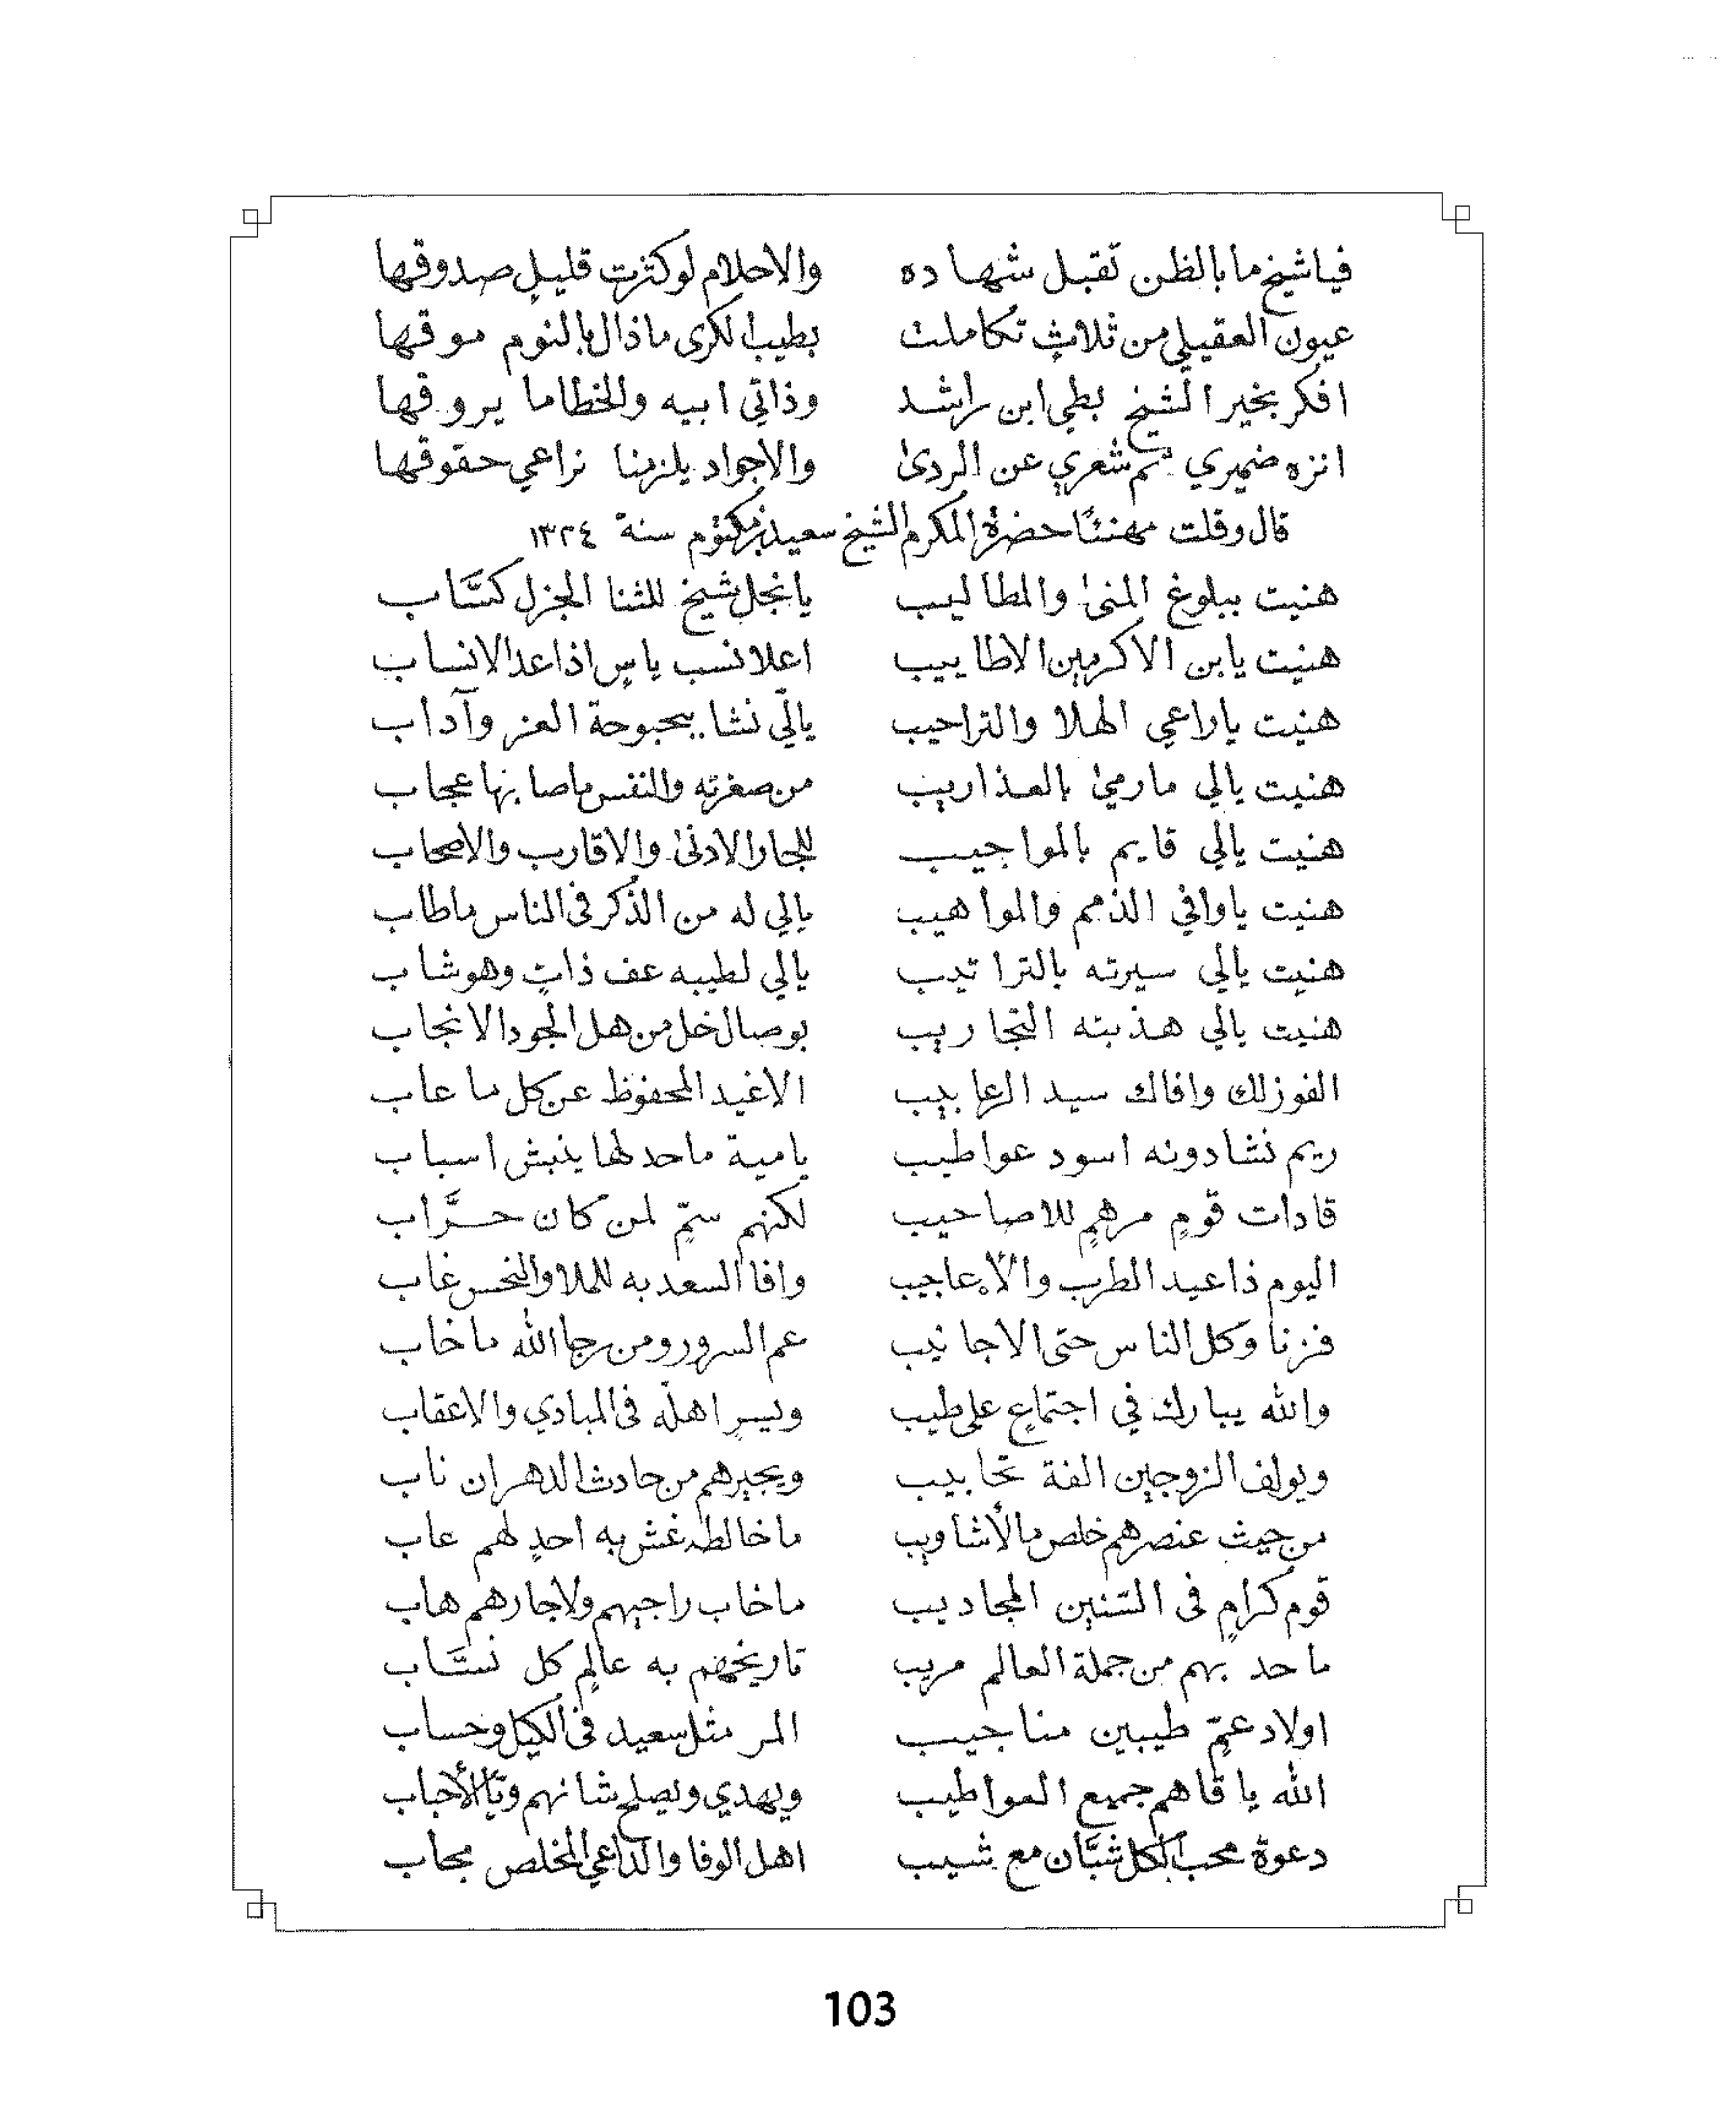 فياشيخ ما بالظن تقبل شهاده والاحلام لو كثرت قليلٍ صدوقها
عيون العقيلي من ثلاثٍ تكاملت بطيب الكرى ماذال بالنوم موقها
افكر بخير الشيخ بطي ابن راشد وذاتي ابيه والخطاما يروقها
انزه ضميري ثم شعري عن الردىٰ والاجواد يلزمنا نراعي حقوقها
قال وقلت مهنئًا حضرة المكرم الشيخ سعيد بن مكتوم سنة ١٣٢٤
هنيت ببلوغ المنىٰ والمطاليب يا نجل شيخ للثنا الجزل كسَّاب
هنيت يابن الاكرمين الاطاييب اعلا نسب ياسٍ اذا عد الانساب
هنيت ياراعي الهلا والتراحيب يالّي نشا ببحبوحة العز وآداب
هنيت يالي مارميٰ بالعذاريب من صغرته والنفس ماصابها عجاب
هنيت يالي قايم بالمواجيب للجار الادنىٰ والاقارب والاصحاب
هنيت ياوافي الذمم والمواهيب يالي له من الذكر في الناس ماطاب
هنيت يالي سيرته بالتراتيب يالي لطيبه عف ذاتٍ وهو شاب
هنيت يالي هذبته التجاريب بوصال خل من هل الجود الانجاب
الفوز لك وافاك سيد الرعابيب الاغيد المحفوظ عن كل ما عاب
ريم نشا دونه اسود عواطيب يامية ماحد لها ينبش اسباب
قادات قومٍ مرهمٍ للاصاحيب لكنهم ستمٍّ لمن كان حرَّاب
اليوم ذا عيد الطرب والأعاجيب وافا السعد به للملا والنحس غاب
فزنا وكل الناس حتى الاجانيب عم السرور ومن رجا الله ماخاب
والله يبارك في اجتماعٍ على طيب ويسرٍ اهلّه في المبادي والاعقاب
ويولف الزوجين الفة تحابيب ويجيرهم من حادث الدهر ان ناب
من حيث عنصرهم خلص مالأشاويب ما خالطه غش به احدٍ لهم عاب
قوم كرامٍ في السّنين المجاديب ماخاب راجيهم ولاجارهم هاب
ماحد بهم من جملة العالم مريب تاريخهم به عالمٍ كل نسَّاب
اولاد عمٍّ طيبين مناجيب المر مثل سعيد في الكيل وحساب
الله ياقاهم جميع العواطيب ويهدي ويصلح شانهم وتاالأحباب
دعوة محب الكل شبَّان مع شيب اهل الوفا والداعي المخلص مجاب
103